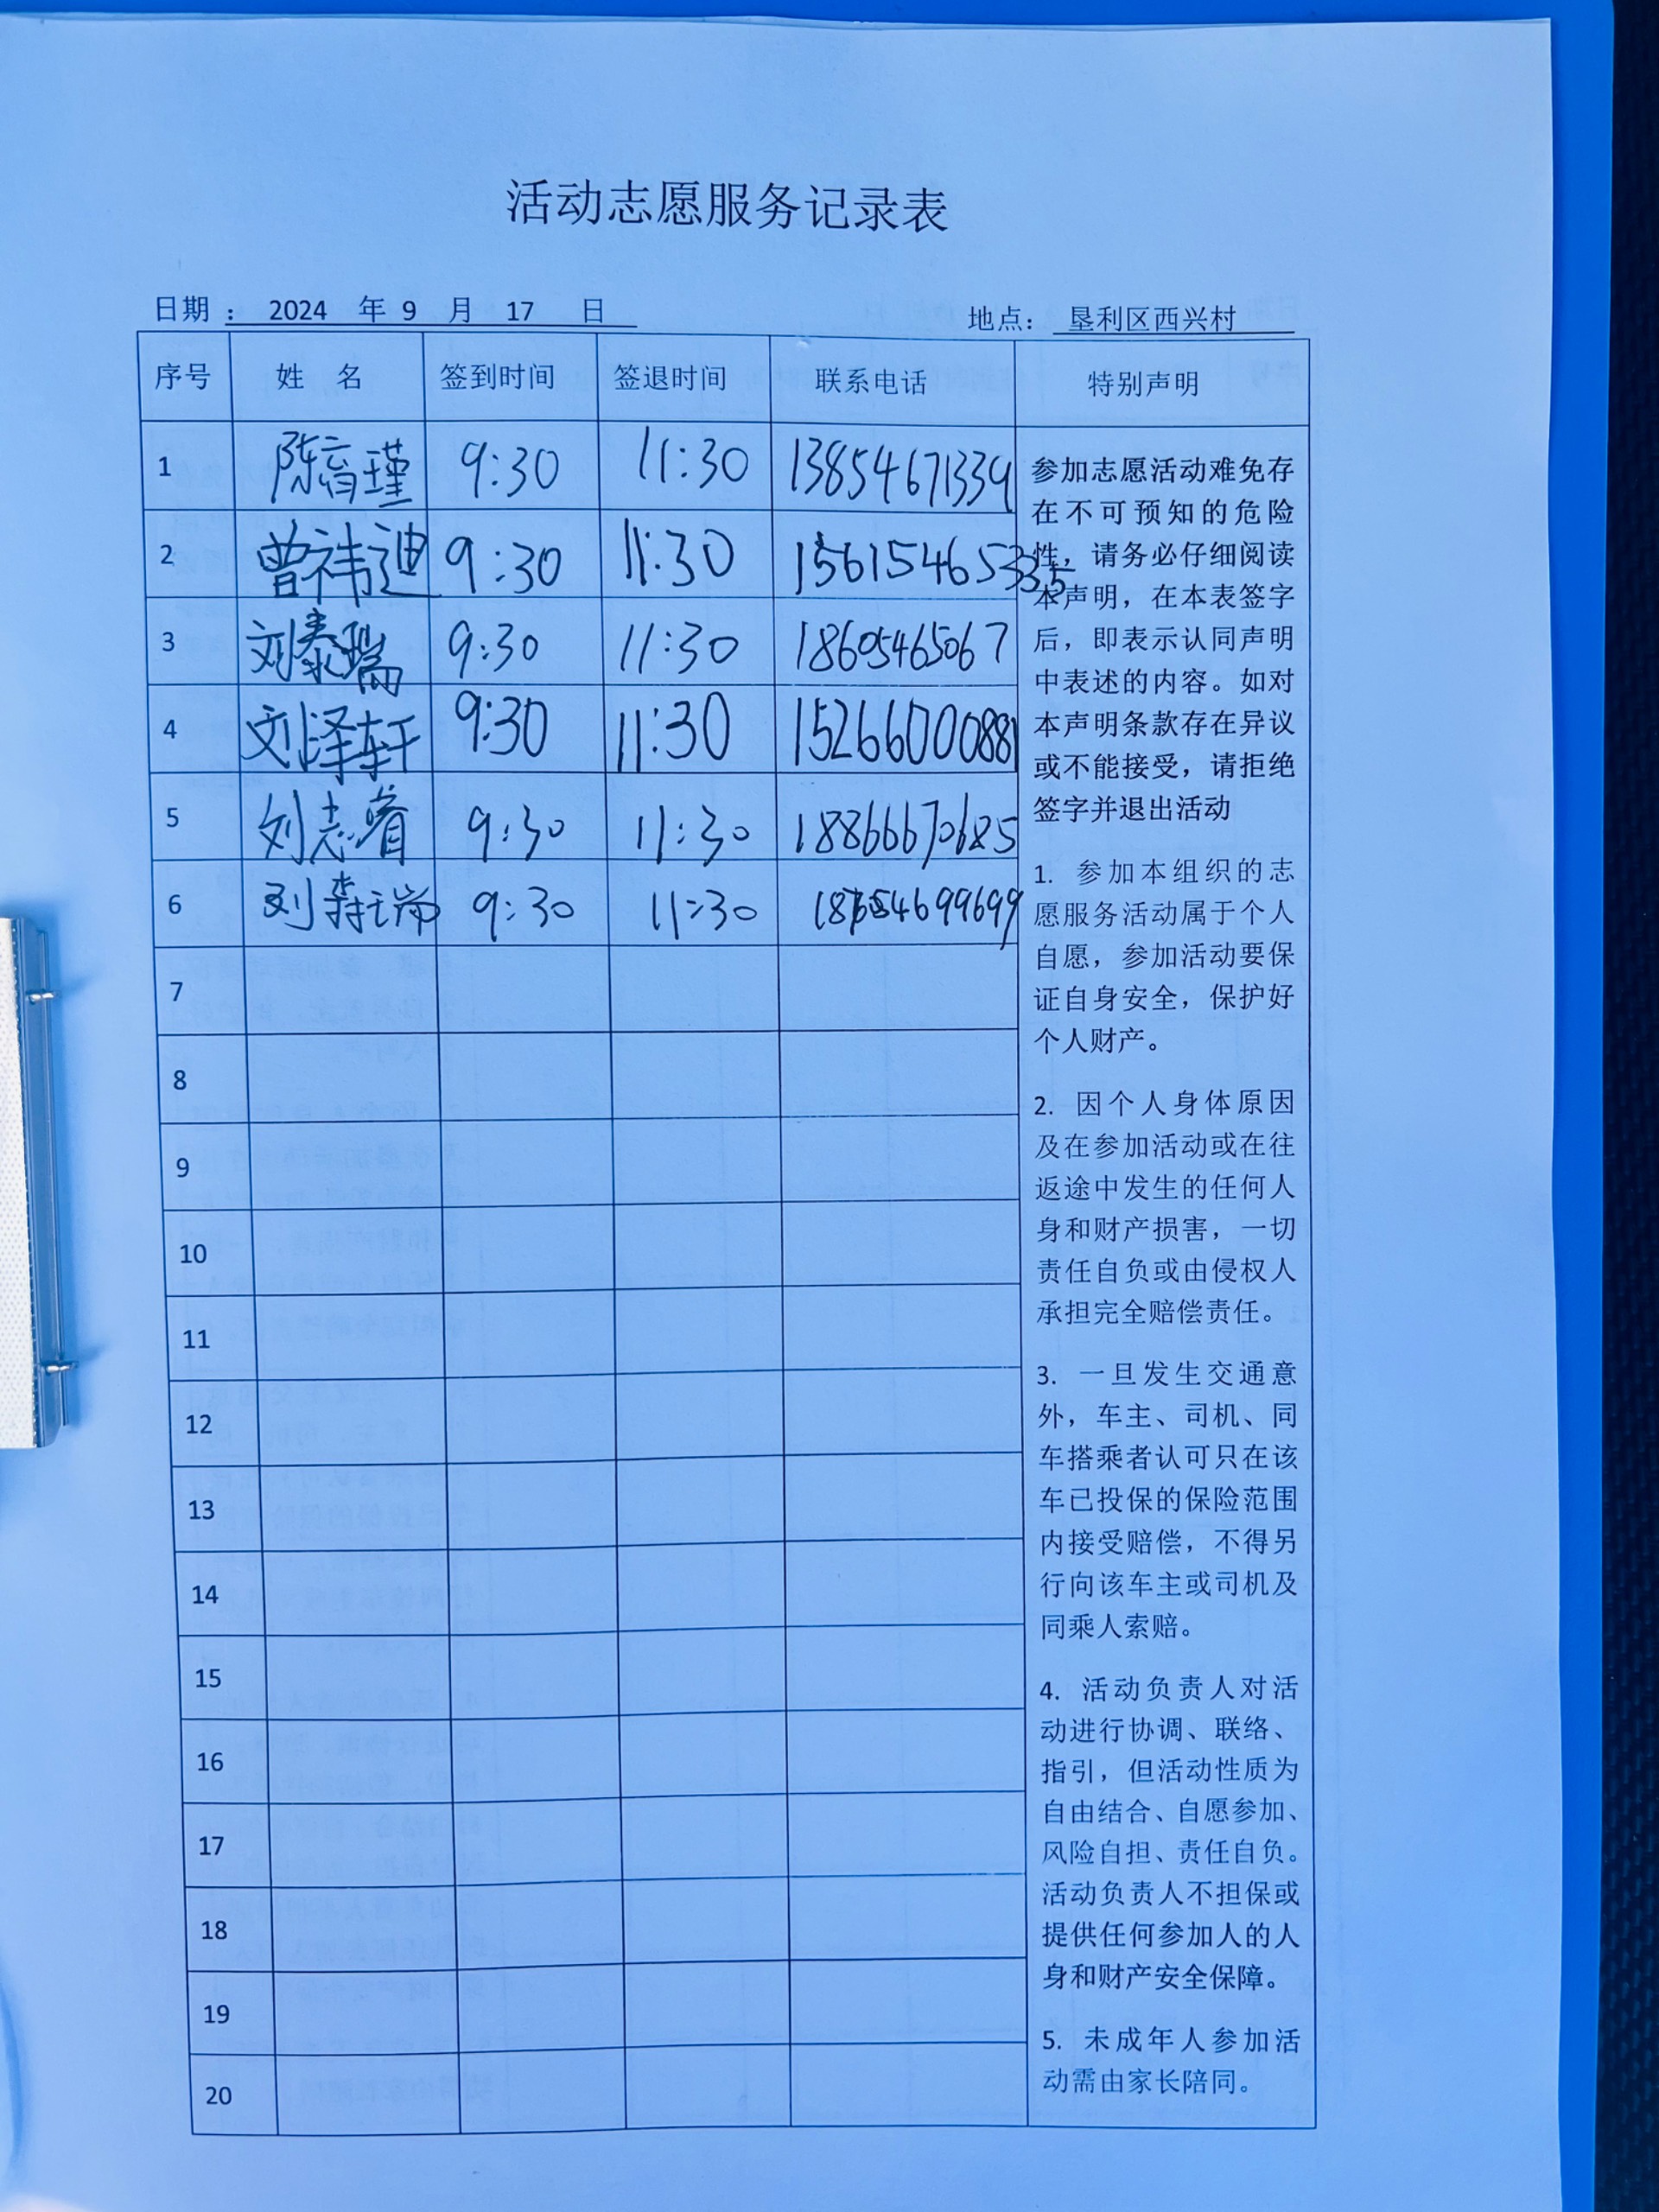 活动志愿服务记录表
日期： 2024 年 9 月 17 日 地点： 垦利区西兴村
序号 姓 名 签到时间 签退时间 联系电话 特别声明
1 陈睿瑾 9:30 11:30 13854671339
2 曾祎迪 9:30 11:30
3 刘泰瑞 9:30 11:30 18605465067
4 刘泽轩 9:30 11:30 15266000881
5 刘志睿 9:30 11:30 18866670685
6 刘森瑞 9:30 11:30
7
8
9
10
11
12
13
14
15
16
17
18
19
20
参加志愿活动难免存
在不可预知的危险
性，请务必仔细阅读
本声明，在本表签字
后，即表示认同声明
中表述的内容。如对
本声明条款存在异议
或不能接受，请拒绝
签字并退出活动
1. 参加本组织的志
愿服务活动属于个人
自愿，参加活动要保
证自身安全，保护好
个人财产。
2. 因个人身体原因
及在参加活动或在往
返途中发生的任何人
身和财产损害，一切
责任自负或由侵权人
承担完全赔偿责任。
3. 一旦发生交通意
外，车主、司机、同
车搭乘者认可只在该
车已投保的保险范围
内接受赔偿，不得另
行向该车主或司机及
同乘人索赔。
4. 活动负责人对活
动进行协调、联络、
指引，但活动性质为
自由结合、自愿参加、
风险自担、责任自负。
活动负责人不担保或
提供任何参加人的人
身和财产安全保障。
5. 未成年人参加活
动需由家长陪同。